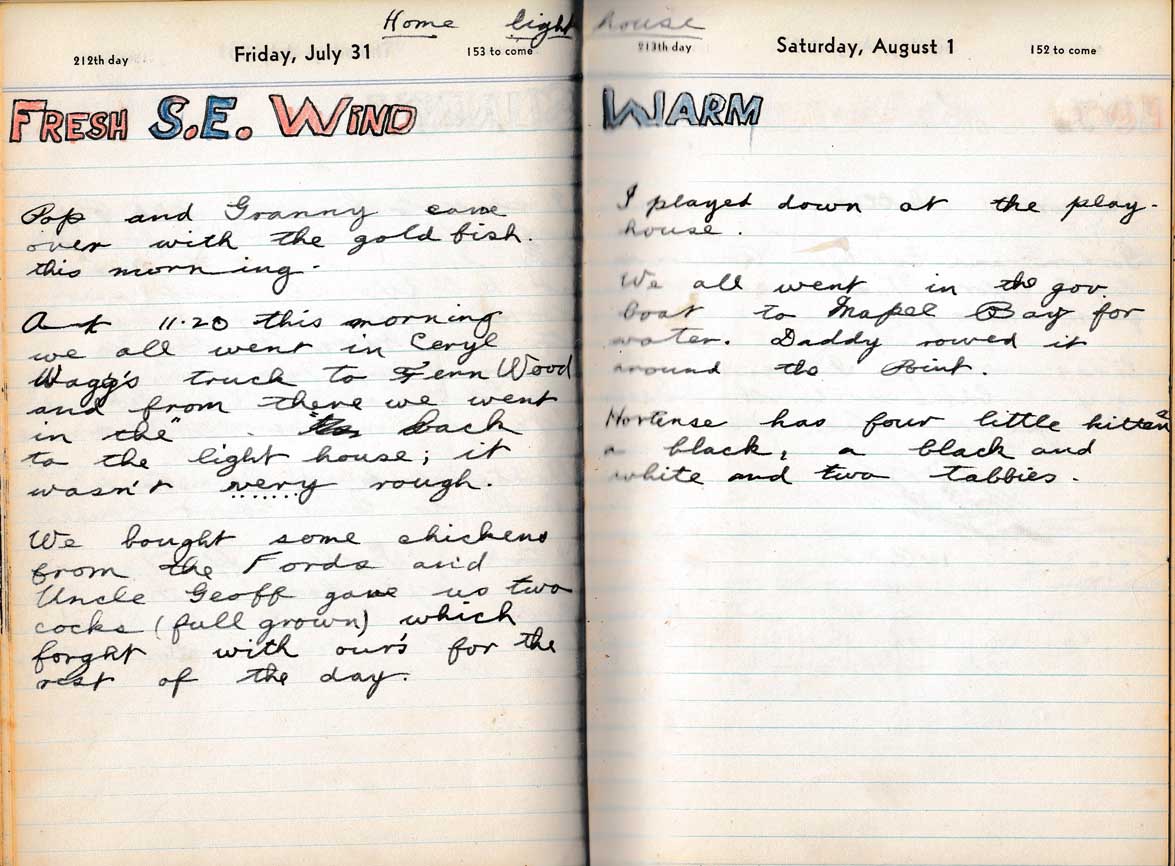 Home light house
212th day Friday, July 31 153 to come
FRESH S.E. WIND
Pop and Granny came
over with the gold fish.
this morn ing.
At 11.20 this morning
we all went in Ceryl
Wagg's truck to Fern Wood
and from there we went
in the" back
to the light house; it
wasn't very rough.
We bought some chickens
from the Fords and
Uncle Geoff gave us two
cocks (full grown) which
forght with our's for the
rest of the day.
213th day Saturday, August 1 152 to come
WARM
I played down at the play-
house.
We all went in the gov.
boat to Mapel Bay for
water. Daddy rowed it
around the Point.
Hortense has four little kittens
a black, a black and
white and two tabbies.